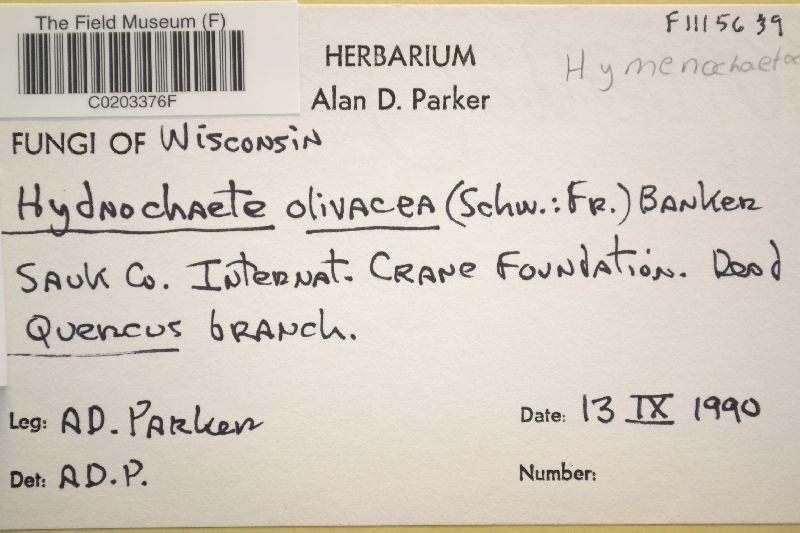 The Field Museum (F)
C0203376F
F1115639
HERBARIUM
Alan D. Parker
FUNGI OF Wisconsin
Hydnochaete olivacea (Schw.:Fr.) Banker
Sauk Co. Internat. Crane Foundation. Dead
Quercus branch.
Leg: AD. Parker
Date: 13 IX 1990
Det: AD.P.
Number: